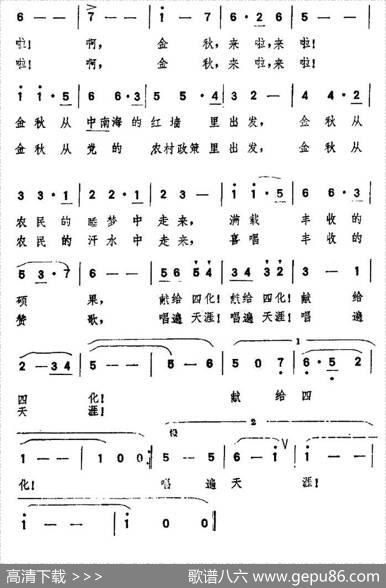 6 — — | 7 — — | i — 7 | 6 · 2 6 | 5 — — |
啦! 啊, 金 秋,来 啦,来 啦!
啦! 啊, 金 秋,来 啦,来 啦!
i i · 5 | 6 6 · 3 | 5 5 · 4 | 3 2 — | 4 4 · 2 |
金秋从 中南海的 红墙 里出发, 金秋从
金秋从 党的 农村政策里出发, 金秋从
3 3 · 1 | 2 2 · 1 | 2 3 — | i i · 5 | 6 6 · 3 |
农民的 睡梦中 走来, 满载 丰收的
农民的 汗水中 走来, 喜唱 丰收的
5 3 · 7 | 6 — — | 56 54 | 34 32 | 3 — 1 |
硕 果, 献给四化! 献给四化! 献 给
赞 歌, 唱遍天涯! 唱遍天涯! 唱 遍
2 — 34 | 5 — — | 5 — 6 | 5 0 7 | 6 · 5 2 |
四 化! 献 给 四
天 涯!
1 — — | 1 0 0 :| 5 — 5 | 6 — i | i — — |
化! 唱 遍 天 涯!
i — — | i 0 0 ‖
高清下载 >>>
歌谱八六 www.gepu86.com